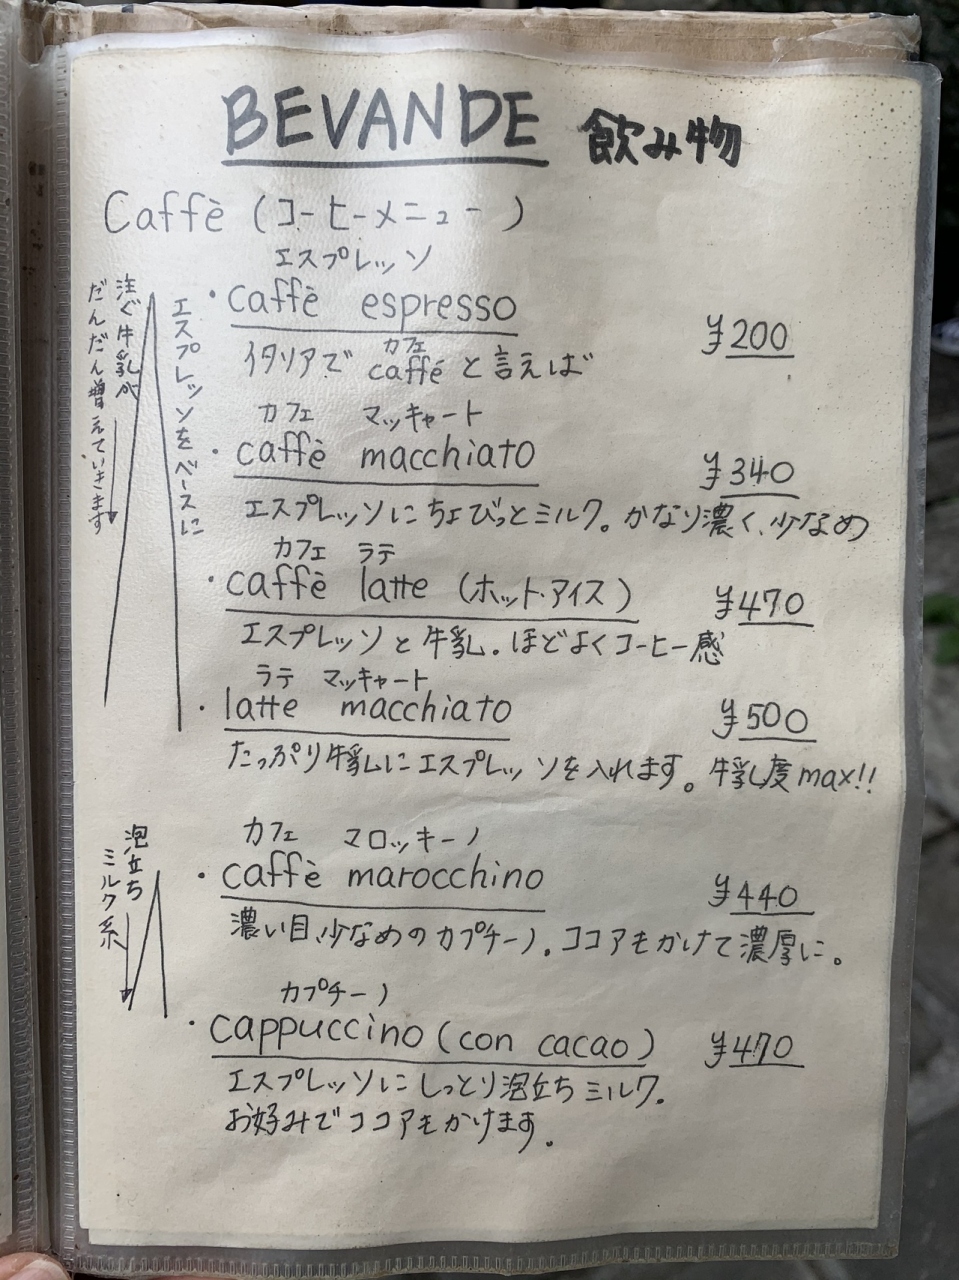 BEVANDE 飲み物
Caffè (コーヒーメニュー)
エスプレッソ
・caffè espresso ¥200
イタリアで caffé と言えば
カフェ
カフェ マッキャート
・caffè macchiato ¥340
エスプレッソにちょびっとミルク。かなり濃く、少なめ
カフェ ラテ
・caffè latte (ホット・アイス) ¥470
エスプレッソと牛乳。ほどよくコーヒー感
ラテ マッキャート
・latte macchiato ¥500
たっぷり牛乳にエスプレッソを入れます。牛乳度max!!
エスプレッソをベースに
注ぐ牛乳が
だんだん増えていきます
カフェ マロッキーノ
・caffè marocchino ¥440
濃い目、少なめのカプチーノ。ココアもかけて濃厚に。
カプチーノ
・cappuccino (con cacao) ¥470
エスプレッソにしっとり泡立ちミルク。
お好みでココアもかけます。
泡立ち
ミルク系